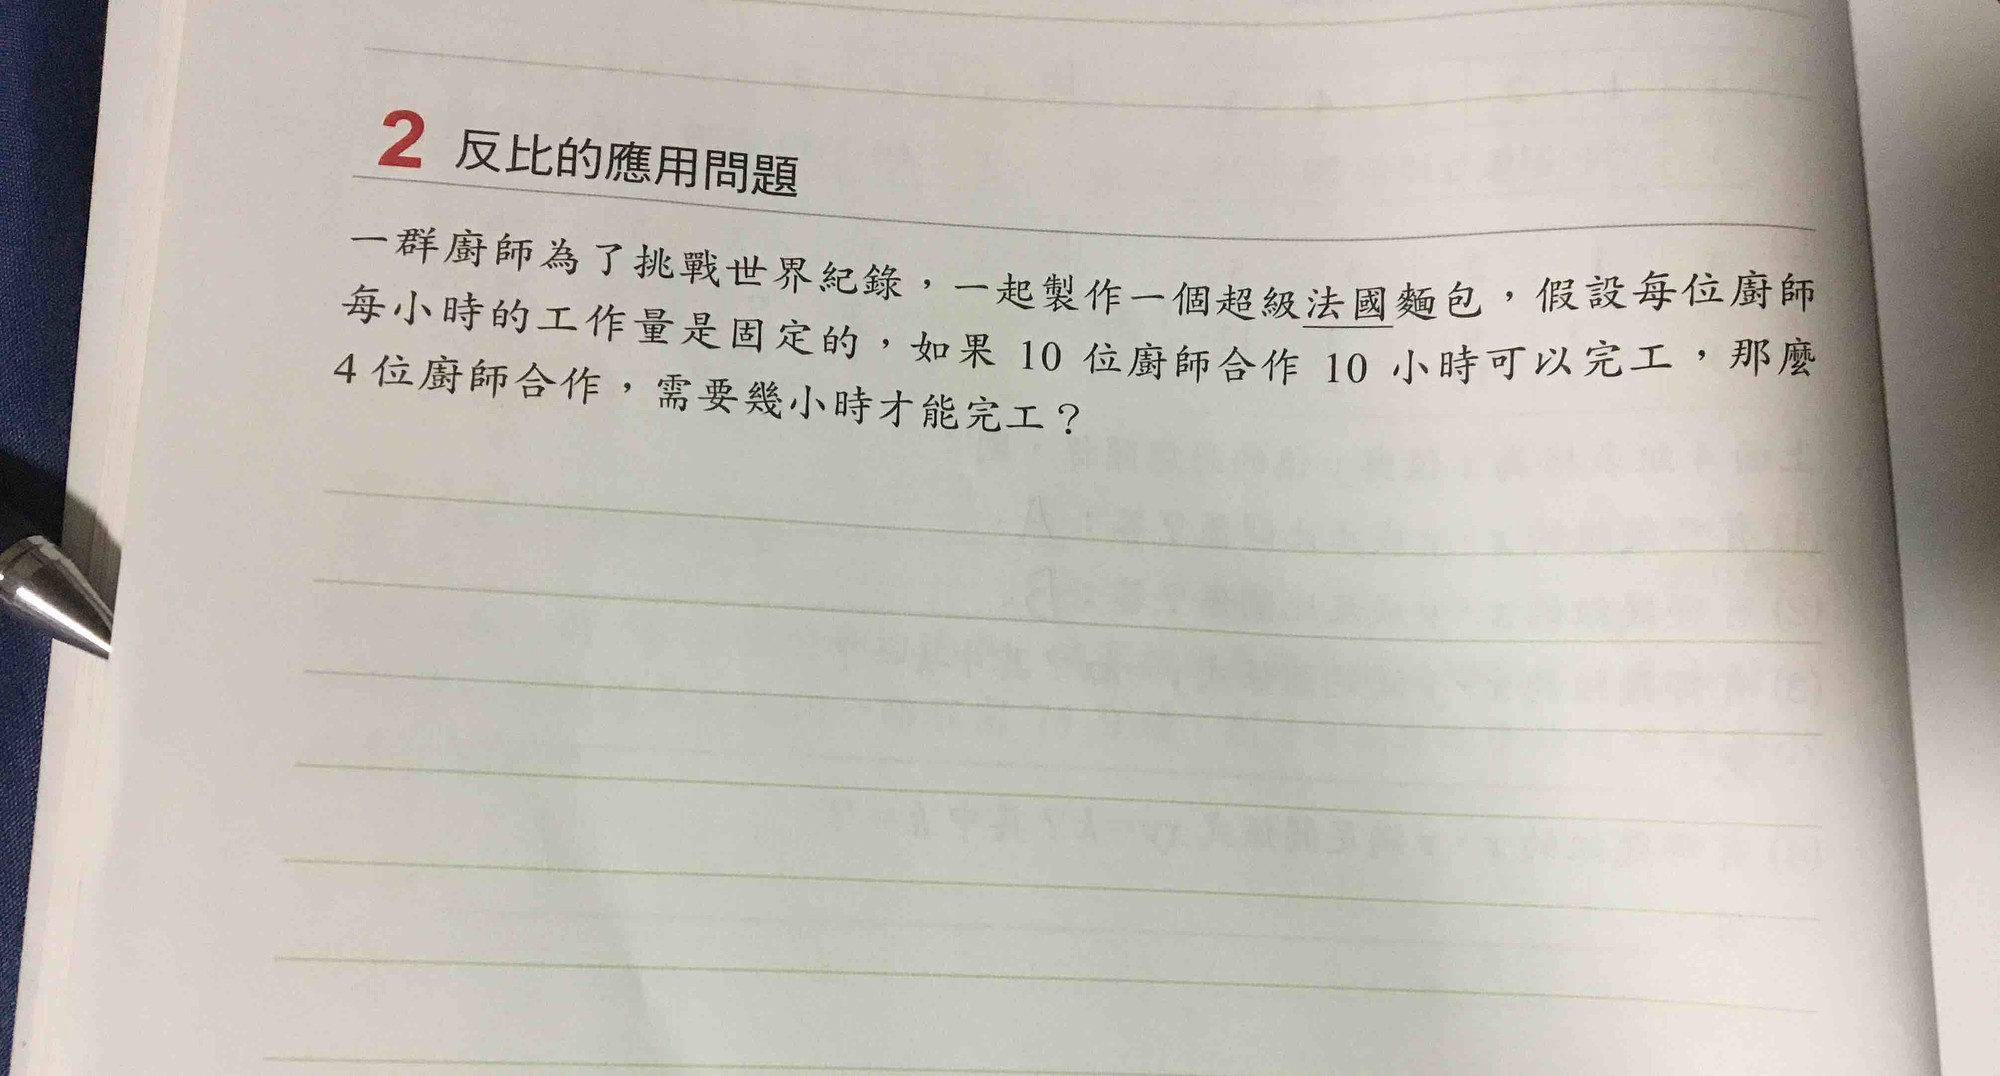 2 反比的應用問題
一群廚師為了挑戰世界紀錄，一起製作一個超級法國麵包，假設每位廚師
每小時的工作量是固定的，如果 10 位廚師合作 10 小時可以完工，那麼
4 位廚師合作，需要幾小時才能完工？